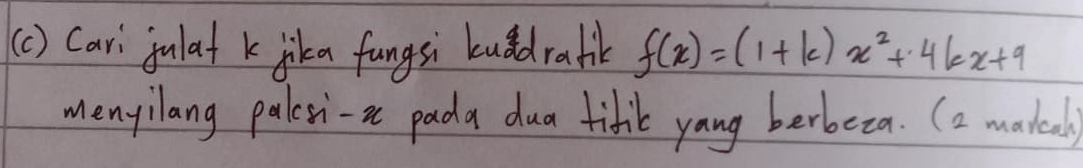 (c) Cari julat k jika fungsi kuadratik f(x) = (1+k) x² + 4kx + 9
menyilang paksi-x pada dua titik yang berbeza. (2 markah)